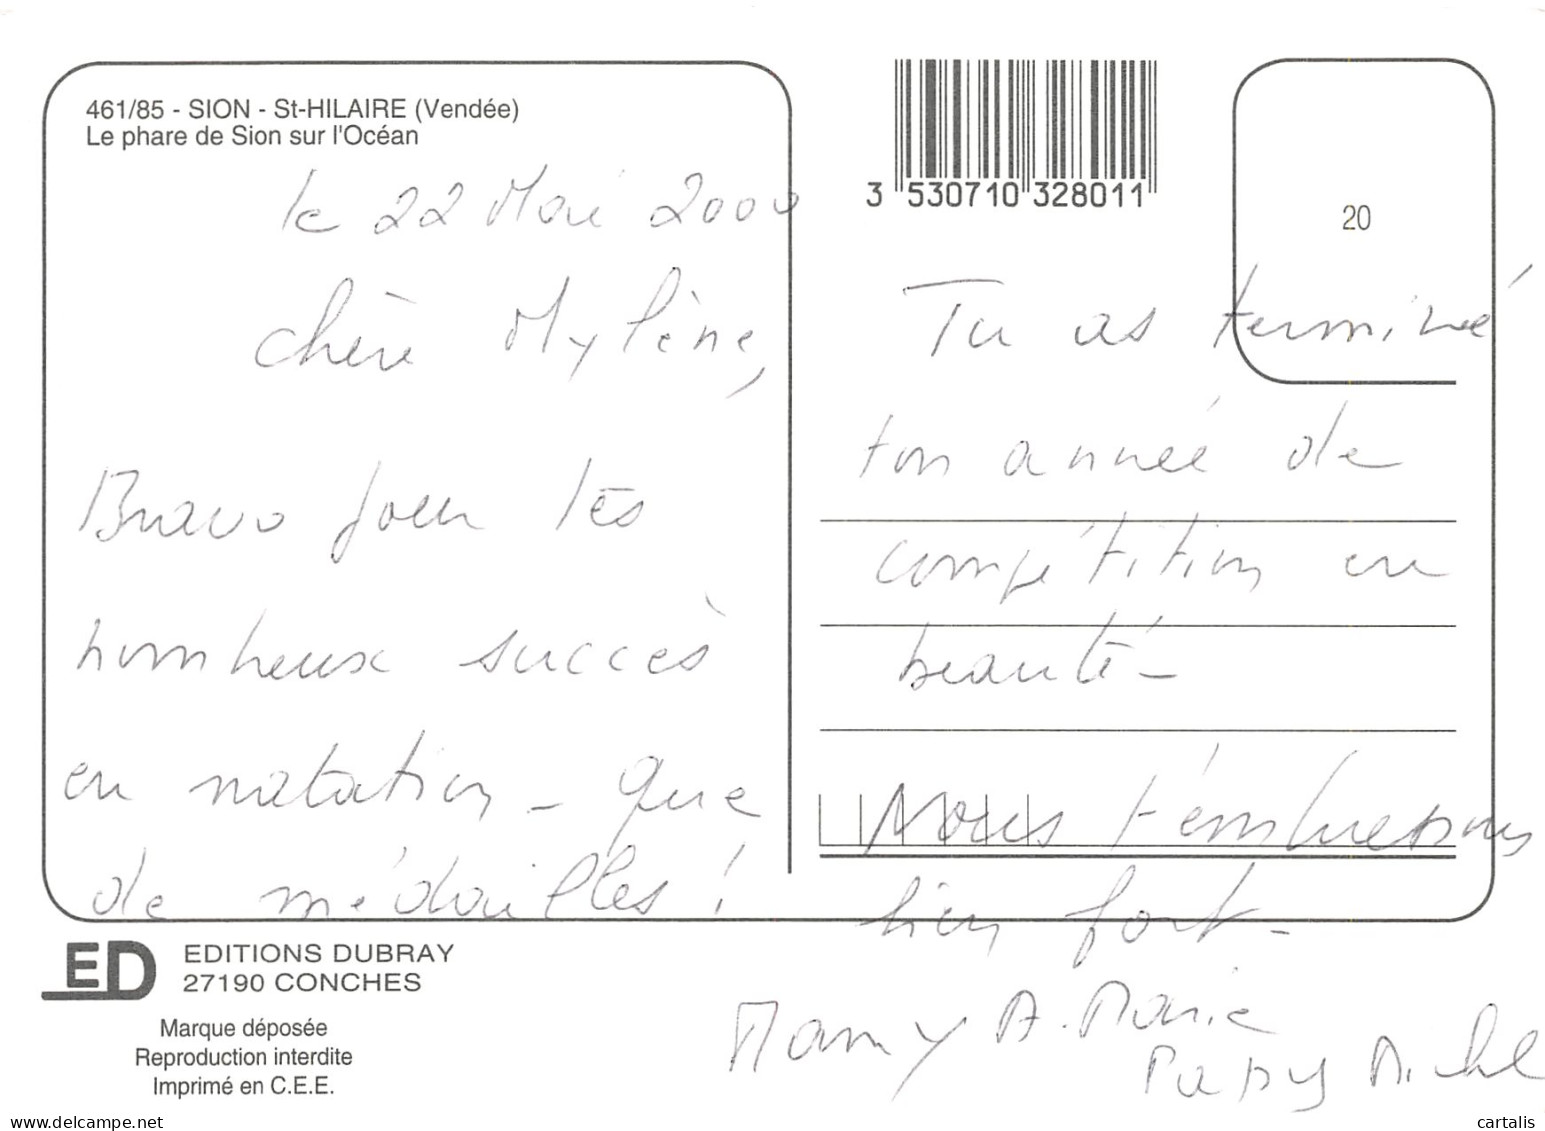 461/85 - SION - St-HILAIRE (Vendée)
Le phare de Sion sur l'Océan
le 22 Mai 2000
Chère Mylène,
Bravo pour tes
nombreux succès
en natation - que
de médailles !
3 530710 328011
20
Tu as terminé
ton année de
compétition en
beauté -
Nous t'embrassons
bien fort -
Mamy A. Marie
Papy Michel
ED
EDITIONS DUBRAY
27190 CONCHES
Marque déposée
Reproduction interdite
Imprimé en C.E.E.
www.delcampe.net
cartalis